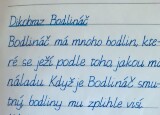 Dikobraz Bodlináč
Bodlináč má mnoho bodlin, kte-
ré se ježí podle toho jakou má
náladu. Když je Bodlináč smu-
tný bodliny mu zplihle visí